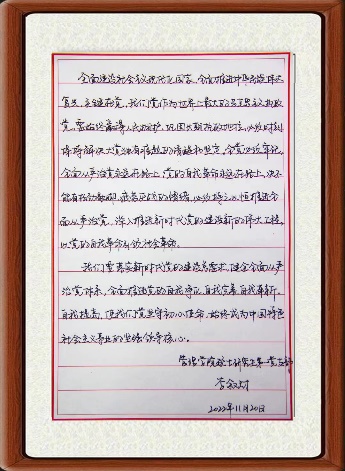 全面建设社会主义现代化国家、全面推进中华民族伟大
复兴，关键在党。我们党作为世界上最大的马克思主义执政
党，要始终赢得人民拥护、巩固长期执政地位，必须时刻
保持解决大党独有难题的清醒和坚定。全党必须牢记，
全面从严治党永远在路上，党的自我革命永远在路上，决不
能有松劲歇脚、疲劳厌战的情绪，必须持之以恒推进全
面从严治党，深入推进新时代党的建设新的伟大工程，
以党的自我革命引领社会革命。
我们要落实新时代党的建设总要求，健全全面从严
治党体系，全面推进党的自我净化、自我完善、自我革新、
自我提高，使我们党坚守初心使命，始终成为中国特色
社会主义事业的坚强领导核心。
管理学院硕士研究生第一党支部
2022年11月20日